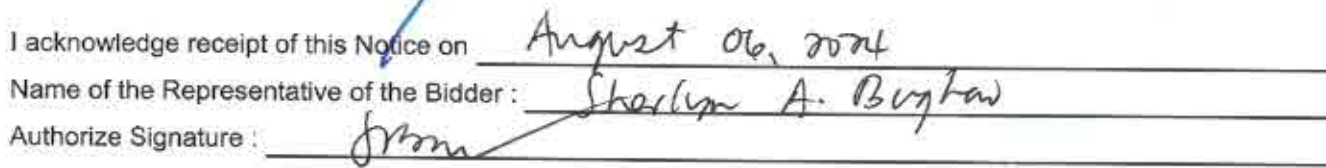 I acknowledge receipt of this Notice on August 06, 2024
Name of the Representative of the Bidder : A.
Authorize Signature :